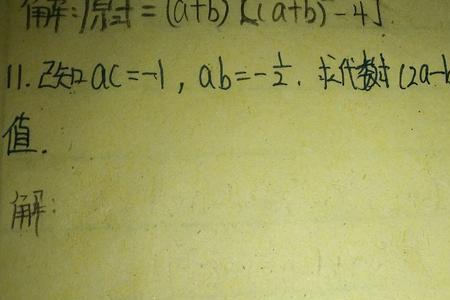 解:原式=(a+b)[(a+b)-4]
11. 已知ac=-1, ab=-1/2. 求代数式(2a-b
值.
解: